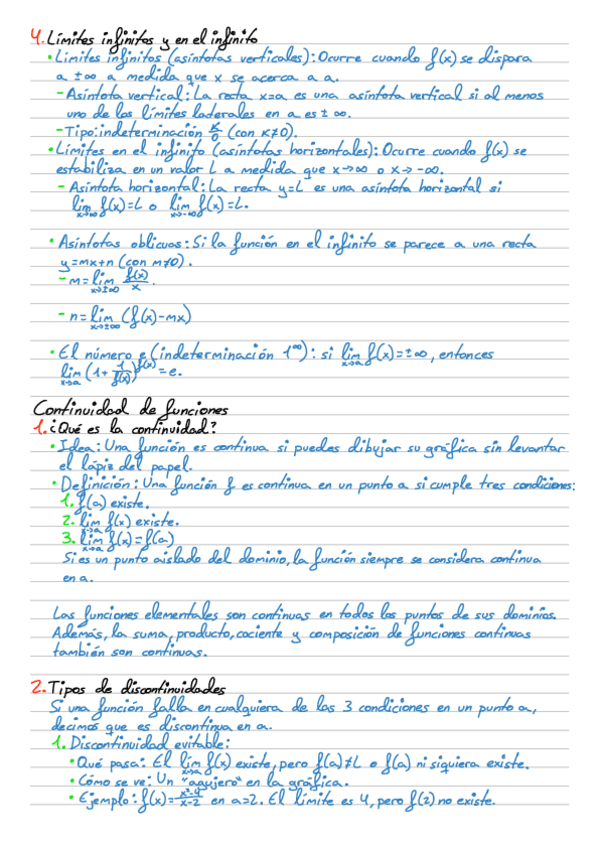 4. Límites infinitos y en el infinito
• Límites infinitos (asíntotas verticales): Ocurre cuando f(x) se dispara
a ±∞ a medida que x se acerca a a.
- Asíntota vertical: La recta x=a es una asíntota vertical si al menos
uno de los límites laterales en a es ±∞.
- Tipo: indeterminación K/0 (con K≠0).
• Límites en el infinito (asíntotas horizontales): Ocurre cuando f(x) se
estabiliza en un valor L a medida que x→∞ o x→-∞.
- Asíntota horizontal: La recta y=L es una asíntota horizontal si
lim x→∞ f(x)=L o lim x→-∞ f(x)=L.
• Asíntotas oblicuas: Si la función en el infinito se parece a una recta
y=mx+n (con m≠0).
- m=lim x→±∞ f(x)/x.
- n=lim x→±∞ (f(x)-mx)
• El número e (indeterminación 1^∞): si lim x→a f(x)=±∞, entonces
lim x→a (1+1/f(x))^f(x)=e.
Continuidad de funciones
1. ¿Qué es la continuidad?
• Idea: Una función es continua si puedes dibujar su gráfica sin levantar
el lápiz del papel.
• Definición: Una función f es continua en un punto a si cumple tres condiciones:
1. f(a) existe.
2. lim x→a f(x) existe.
3. lim x→a f(x)=f(a)
Si es un punto aislado del dominio, la función siempre se considera continua
en a.
Las funciones elementales son continuas en todos los puntos de sus dominios.
Además, la suma, producto, cociente y composición de funciones continuas
también son continuas.
2. Tipos de discontinuidades
Si una función falla en cualquiera de las 3 condiciones en un punto a,
decimos que es discontinua en a.
1. Discontinuidad evitable:
• Qué pasa: El lim x→a f(x) existe, pero f(a)≠L o f(a) ni siquiera existe.
• Cómo se ve: Un "agujero" en la gráfica.
• Ejemplo: f(x)=x²-4/x-2 en a=2. El límite es 4, pero f(2) no existe.